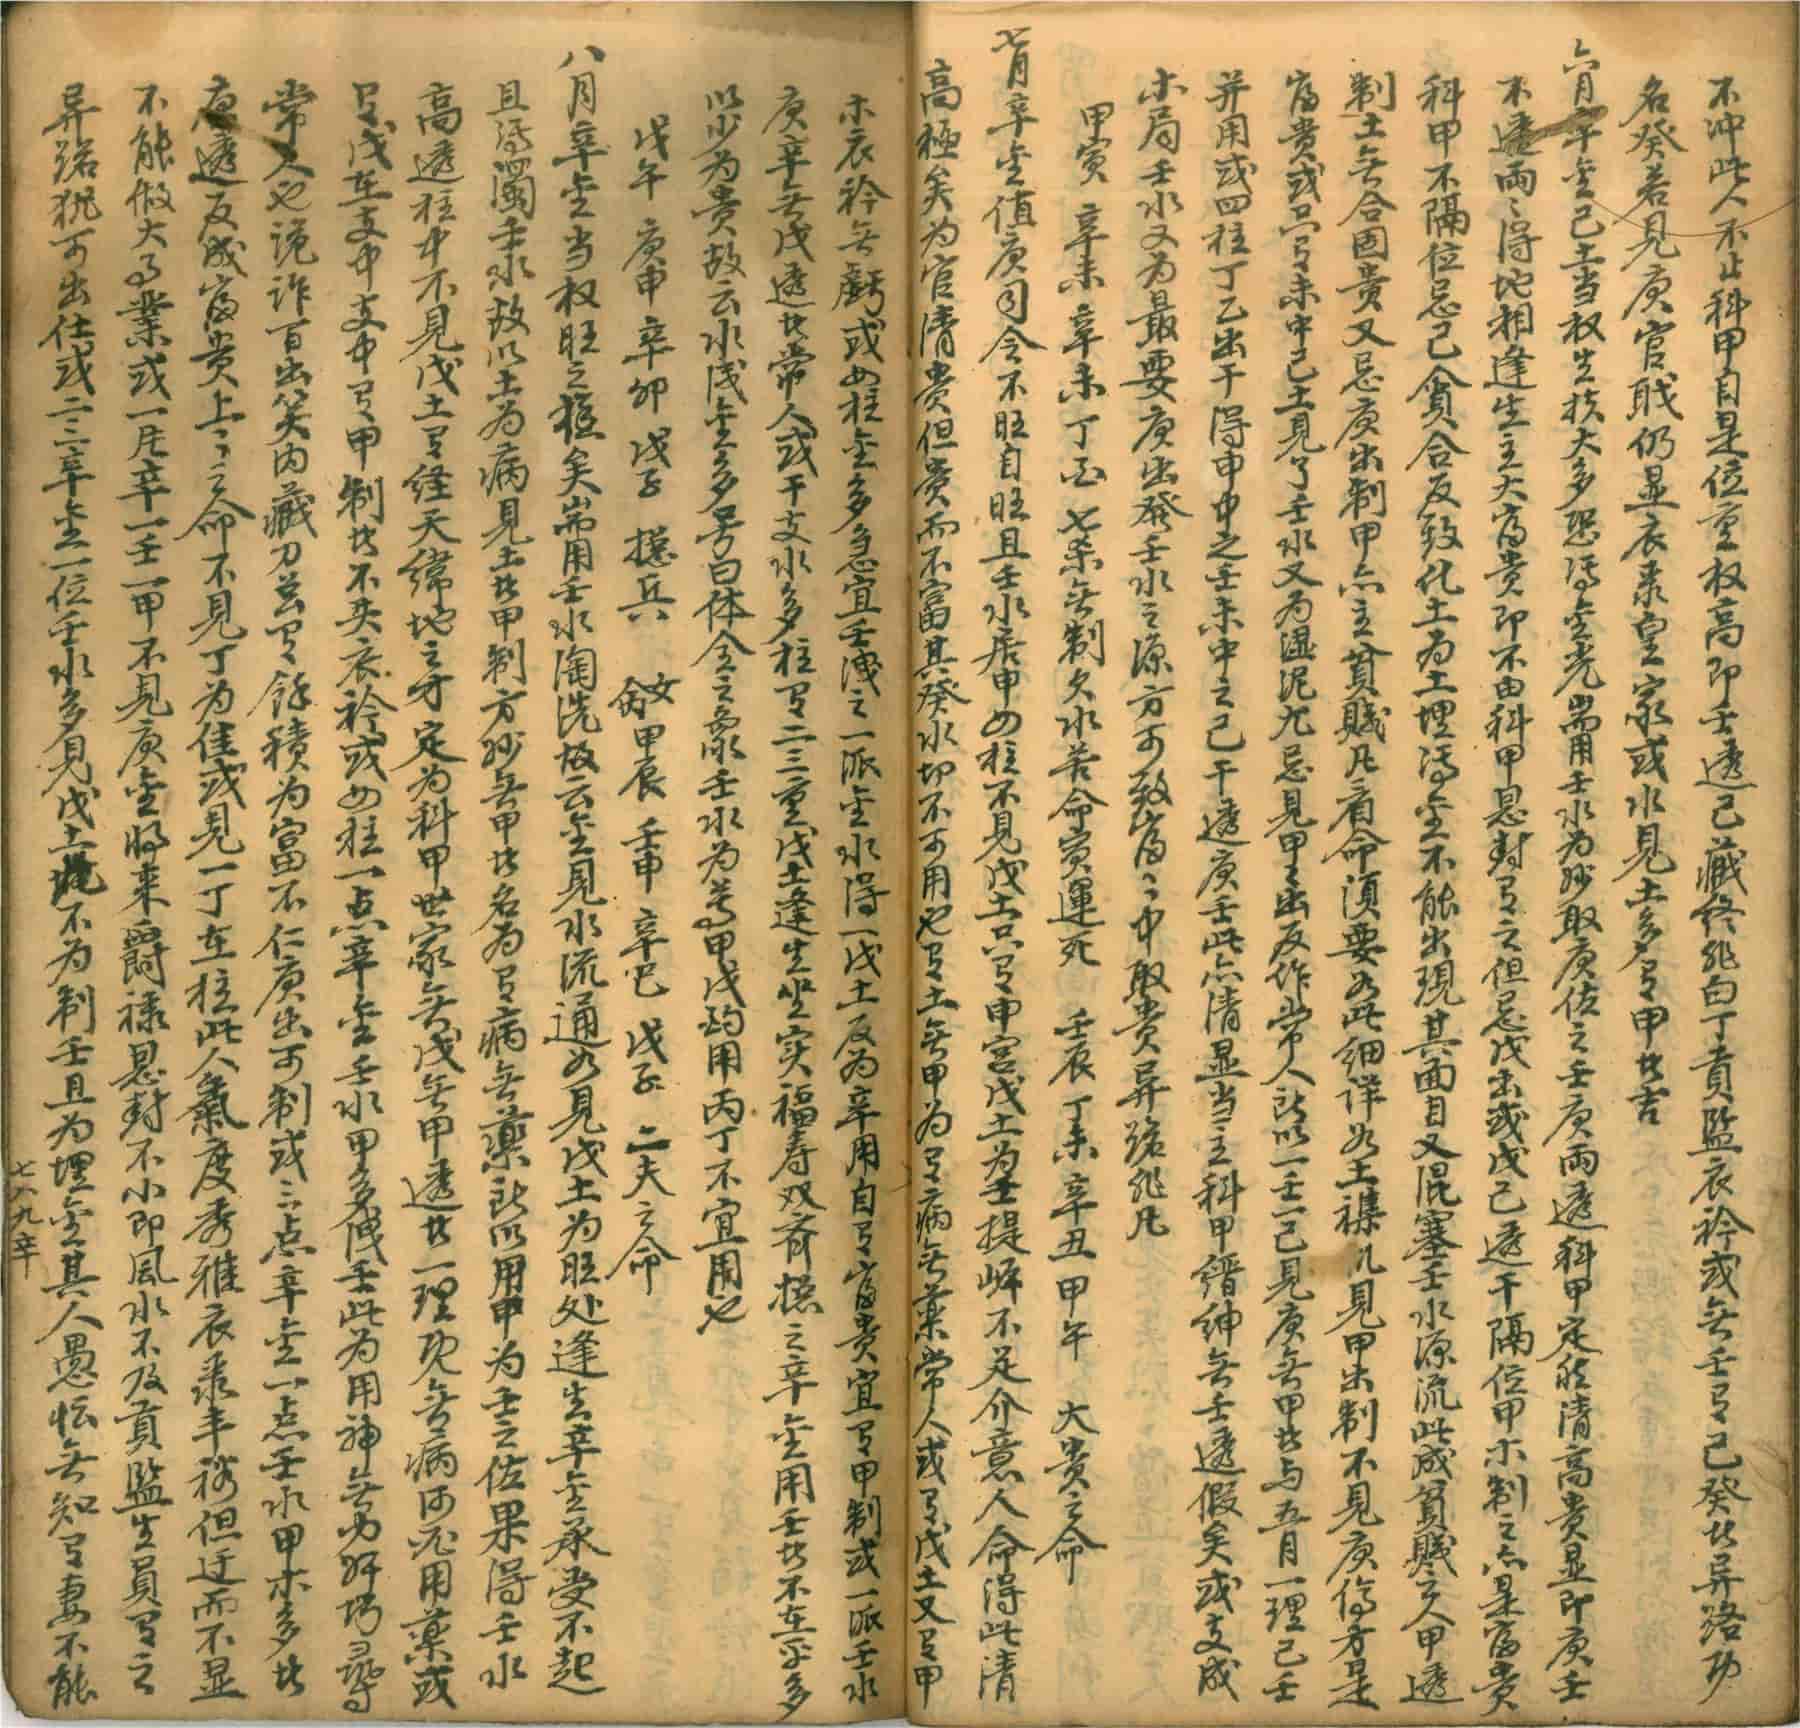 不沖此人不止科甲自是位重权高即壬透己藏終非白丁貢監衣衿或無壬有己癸此异路功
名癸若見庚官戝仍显衣录皇家或水見土多有甲此吉
六月辛金己土当权生扶太多恐污金光耑用壬水为妙取庚佐之壬庚両透科甲定然清高貴显即庚壬
不透両〻得地相逢生主大富貴即不由科甲恩封有之但忌戊出或戊己透干隔位甲木制之亦是富貴
科甲不隔位忌己貪合反致化土为土埋污金不能出現其面目又混塞壬水源流此成貧賤之人甲透
制土無合固貴又忌庚出制甲亦主貧賤凡看命須要如此細詳如土襍凡見甲出制不見庚傷方是
富貴或只有未中己土見了壬水又为湿泥尤忌見甲出反作常人訣以一壬一己見庚無甲此与五月一理己壬
并用或四柱丁乙出干得申中之壬未中之己干透庚壬此亦清显当主科甲縉紳無壬透假矣或支成
木局壬水又为最要庚出發壬水之源方可致富〻中取貴异路非凡
甲寅 辛未 辛未 丁酉 七杀無制欠水苦命寅運死 壬辰 丁未 辛丑 甲午 大貴之命
七月辛金值庚司令不旺自旺且壬水居申如柱不見戊土只有申宮戊土为壬提岸不足介意人命得此清
高極矣为官清貴但貴而不富其癸水切不可用也有土無甲为有病無薬常人或有戊土又有甲
木衣衿無虧或如柱金多急宜壬洩之一派金水得一戊土反为辛用自有富貴宜有甲制或一派壬水
庚辛無戊透此常人或干支水多柱有二三重戊土逢生坐实福寿双斉揔之辛金用壬此不在乎多
以少为貴故云水浅金多号曰体全之象壬水为尊甲戊酌用丙丁不宜用也
戊午 庚申 辛卯 戊子 揔兵 女命 甲辰 壬申 辛巳 戊子 二夫之命
八月辛金当权旺之極矣耑用壬水淘洗故云金見水流通如見戊土为旺处逢生辛金承受不起
且污濁壬水故以土为病見土此甲制方妙無甲此名为有病無薬訣以用甲为壬之佐果得壬水
高透柱中不見戊土有経天緯地之才定为科甲世家無戊無甲透此一理既無病何必用薬或
有戊在支中支中有甲制此不失衣衿或如柱一点辛金壬水甲多洩壬此为用神無力奸巧尋
常人也詭詐百出笑内藏刀若有餘積为富不仁庚出可制或三点辛金一点壬水甲木多此
庚透反成富貴上〻之命不見丁为佳或見一丁在柱此人氣度秀雅衣录丰裕但迂而不显
不能做大事業或一片辛一壬一甲不見庚金將来爵祿恩封不小即風水不及貢監生員有之
异路猶可出仕或二三辛金一位壬水多見戊土堤不为制壬且为埋金其人愚怯無知有妻不能
七八九辛